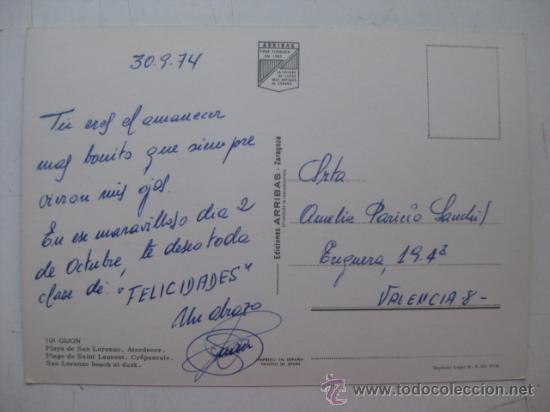 30.9.74
Tu eres el amanecer
mas bonito que siempre
vieron mis ojos.
En ese maravilloso dia 2
de Octubre, te deseo toda
clase de: "FELICIDADES"
Un abrazo
109 GIJON
Playa de San Lorenzo. Atardecer.
Plage de Saint Laurent. Crépuscule.
San Lorenzo beach at dusk.
ARRIBAS
Ediciones ARRIBAS - Zaragoza
(Prohibida la reproducción)
IMPRESO EN ESPAÑA
PRINTED IN SPAIN
Srta
Amelia Paricio
Enguera, 19.4ª
VALENCIA-8-
Depósito Legal
www.todocoleccion.net